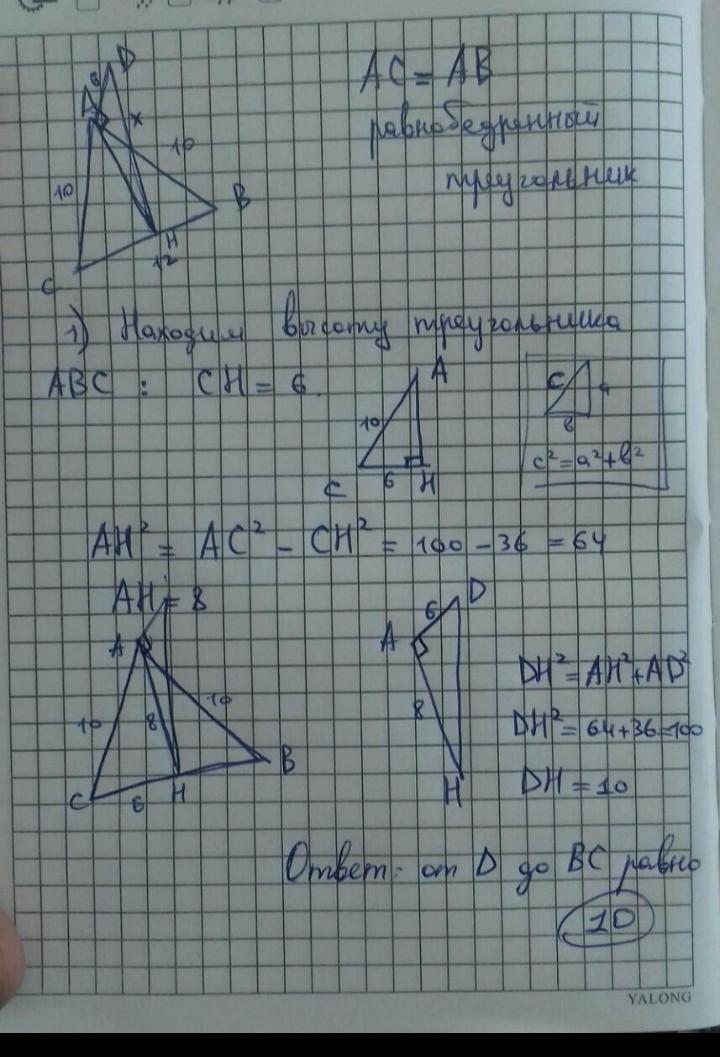 D
6
A
x
10
10
B
H
12
C
AC = AB
равнобедренный
треугольник
1) Находим высоту треугольника
ABC : CH = 6.
A
10
C 6 H
c
a
в
c² = a² + в²
AH² = AC² - CH² = 100 - 36 = 64
AH = 8
A
10
8
10
B
C 6 H
6 D
A
8
H
DH² = AH² + AD²
DH² = 64 + 36 = 100
DH = 10
Ответ: от D до BC равно
10
YALONG